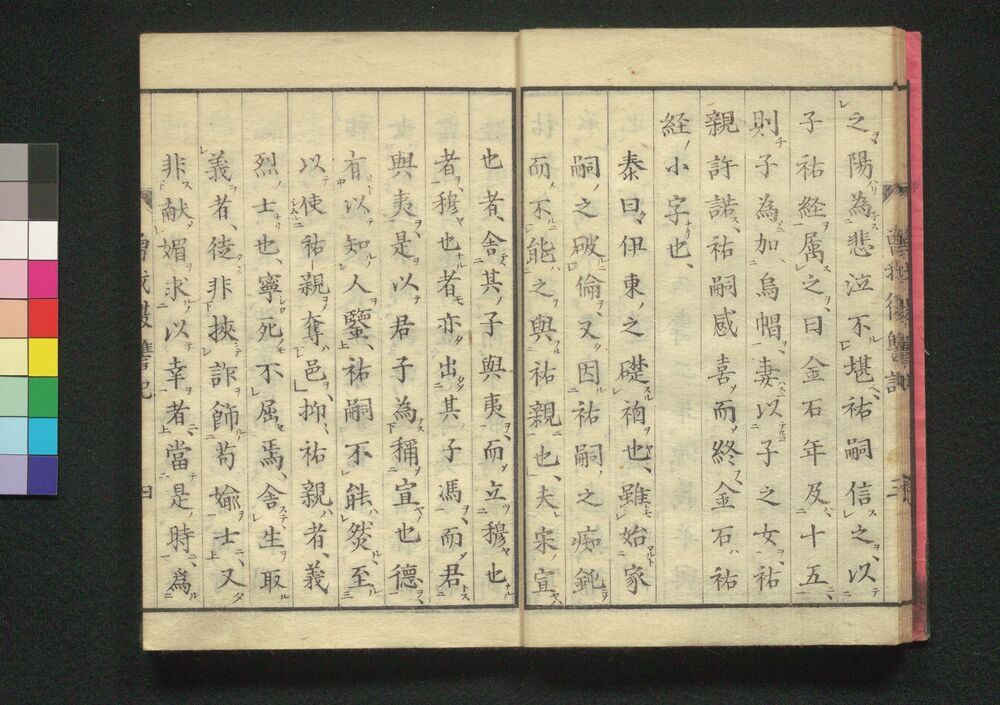 之陽為悲泣不堪祐嗣信之以
子祐経属之曰金石年及十五
則子為加烏帽妻以子之女祐
親許諾祐嗣感喜而終金石祐
経小字也
泰曰伊東之礎禍也雖始家
嗣之破倫又因祐嗣之痴鈍
而不能之與祐親也夫宋宣
也者舎其子與夷而立穆也
者穆也者亦出其子馮而君
與夷是以君子為稱宣也德
有以知人鑒祐嗣不能然至
以使祐親奪邑抑祐親者義
烈士也寧死不屈焉舎生取
義者徒非挾詐飾苟婾士又
非献媚求以幸者當是時為